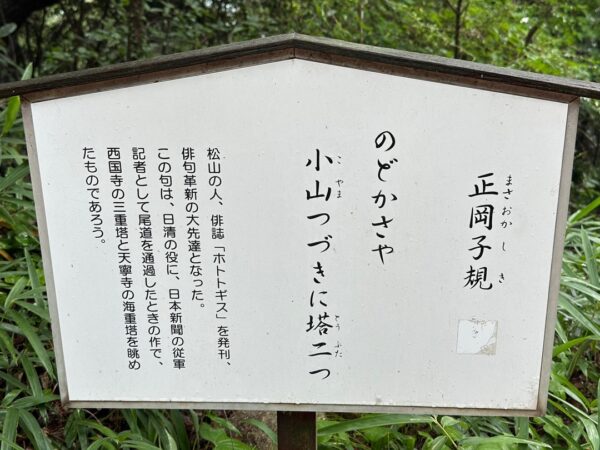 正岡子規
まさおかしき
のどかさや
小山つづきに塔二つ
こやま
とうふた
松山の人、俳誌「ホトトギス」を発刊、
俳句革新の大先達となった。
この句は、日清の役に、日本新聞の従軍
記者として尾道を通過したときの作で、
西国寺の三重塔と天寧寺の海雲塔を眺め
たものであろう。